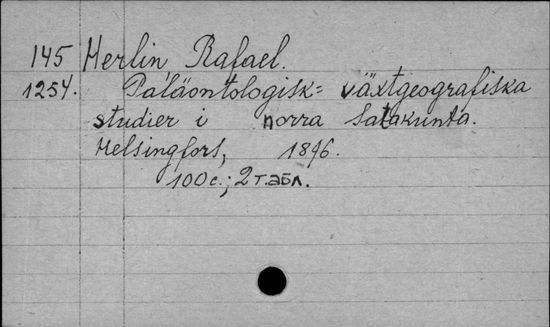 145 Herlin Rafael.
1254. Paläontologisk= växtgeografiska
studier i norra Satakunta.
Helsingfors, 1896.
100 с.; 2 т.абл.